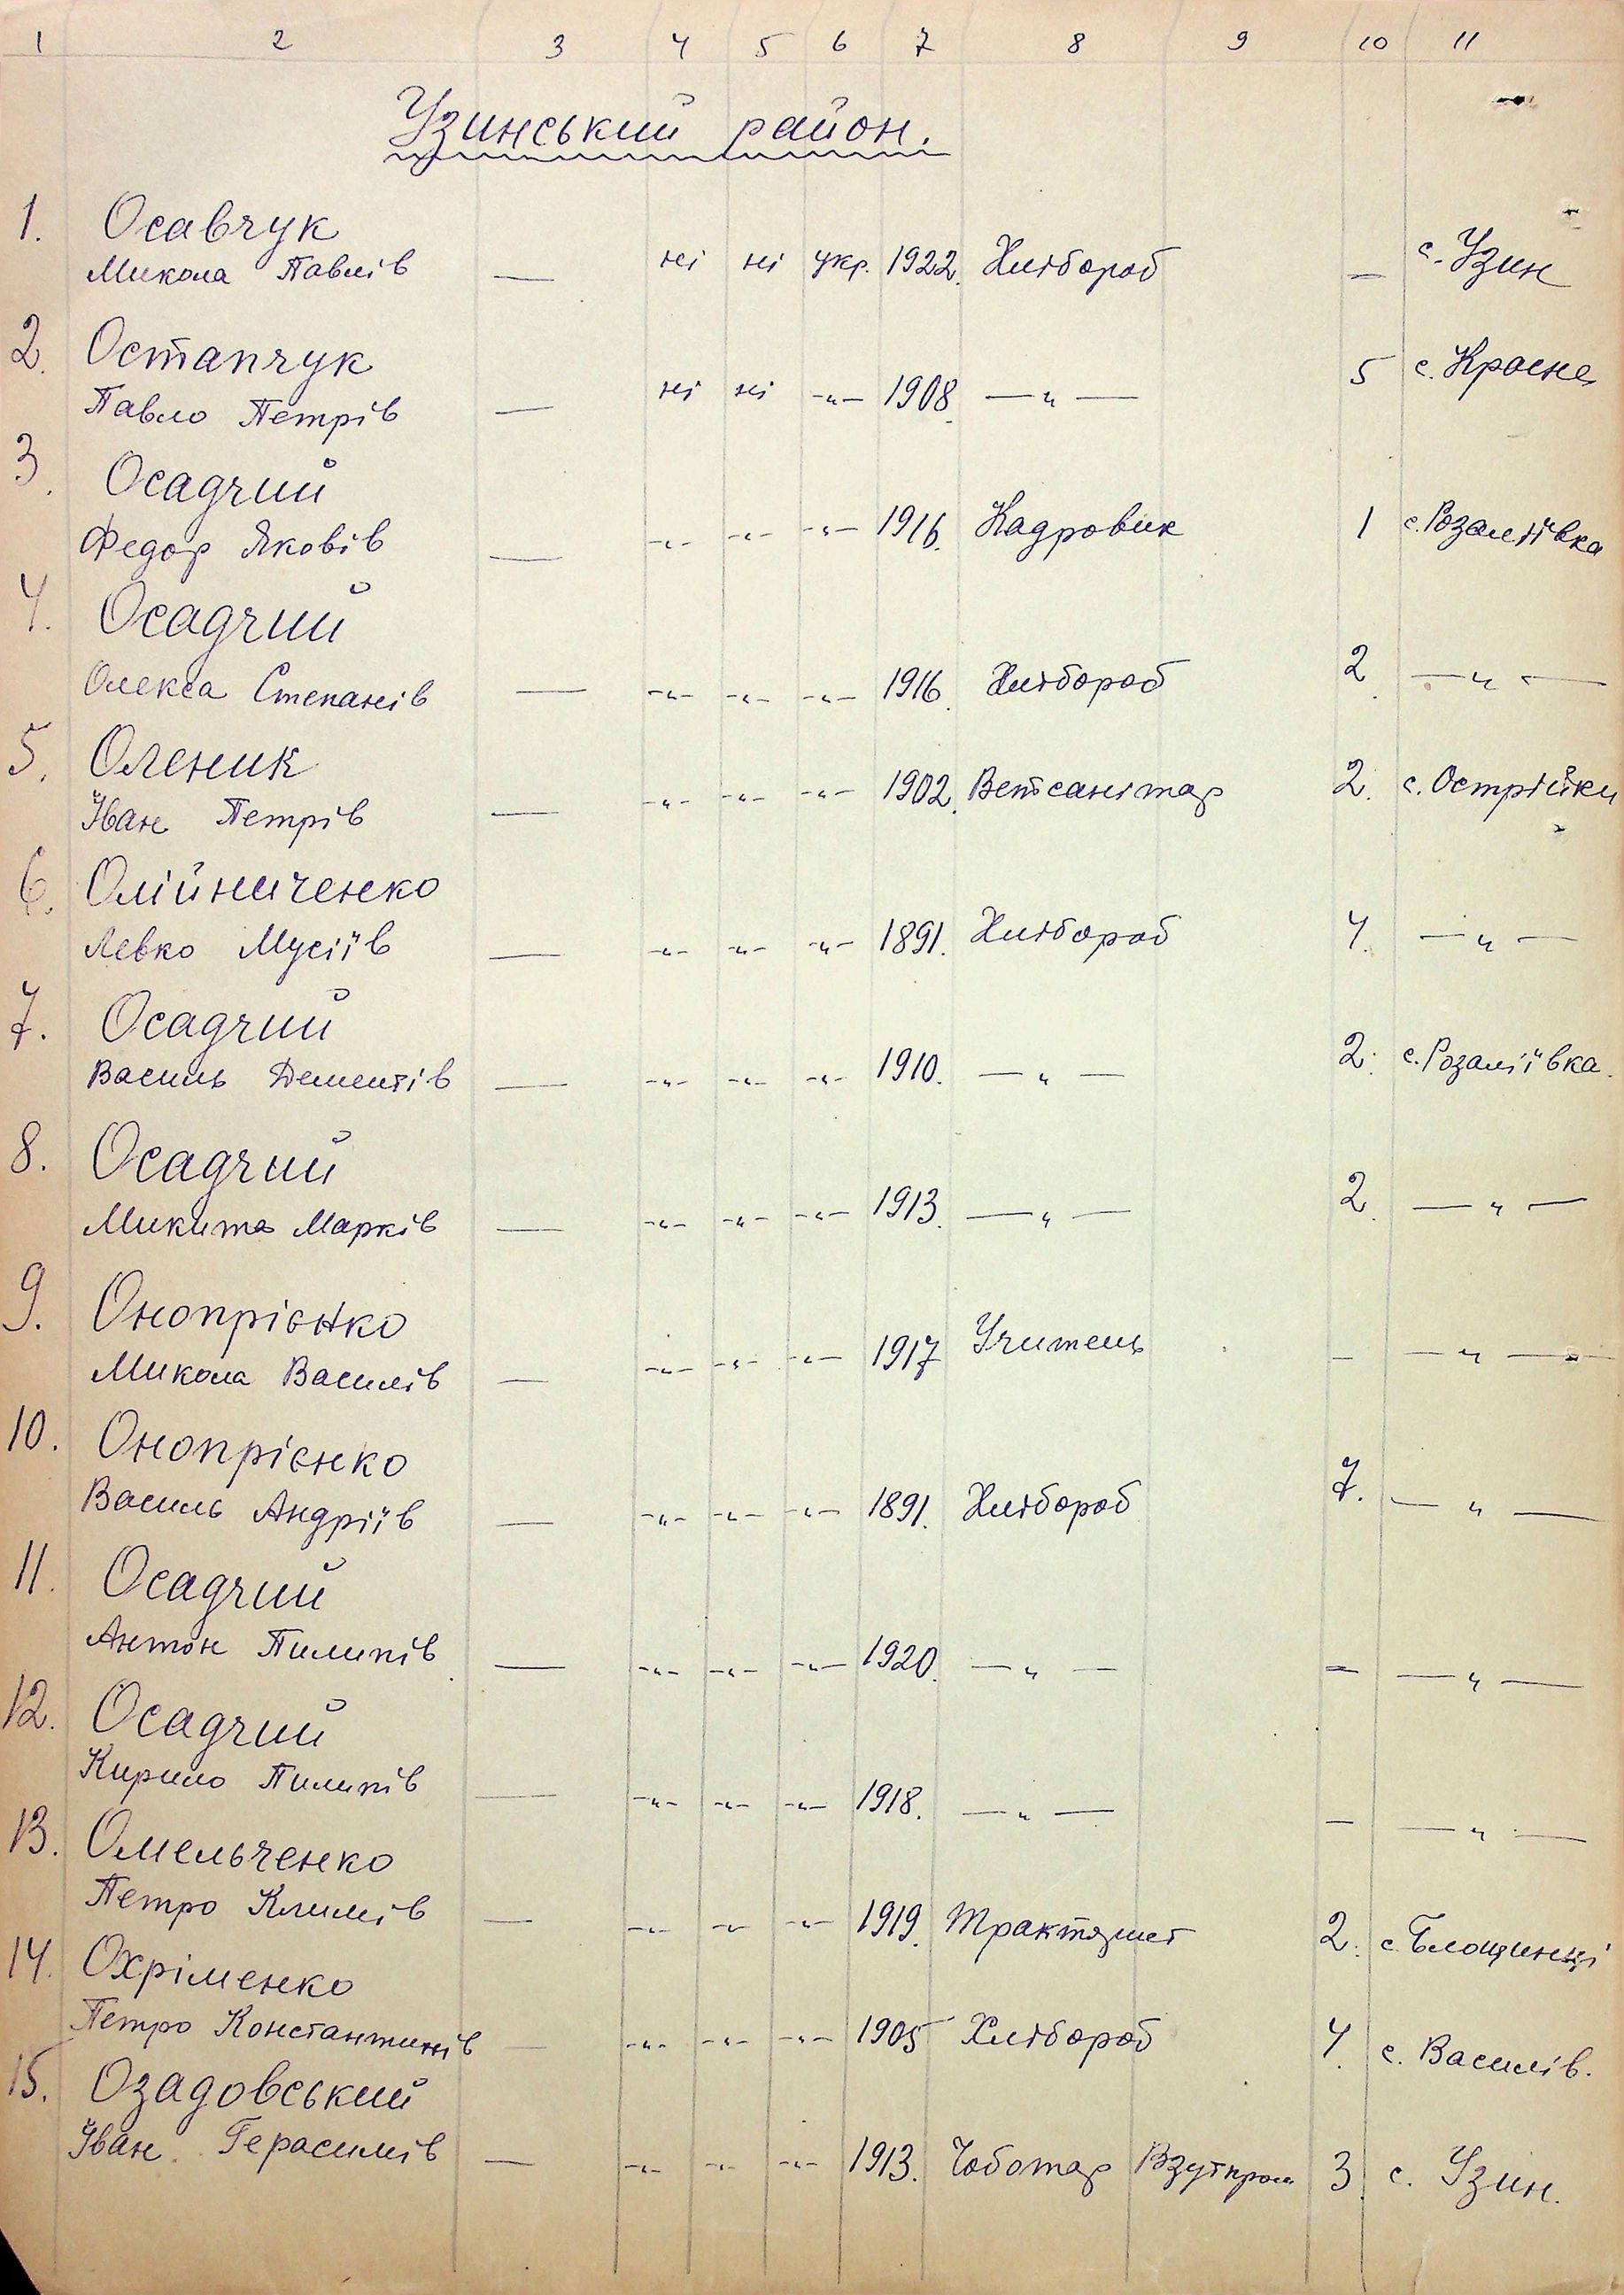 1 2 3 4 5 6 7 8 9 10 11
Узинський район.
1. Осавчук
Микола Павлів — ні ні укр. 1922. Хлібороб — с. Узин
2. Остапчук
Павло Петрів — ні ні -"- 1908. —"— 5 с. Красне
3. Осадчий
Федор Яковів — -"- -"- -"- 1916. Кадровик 1 с. Розаліївка
4. Осадчий
Олекса Степанів — -"- -"- -"- 1916. Хлібороб 2. —"—
5. Оленик
Іван Петрів — -"- -"- -"- 1902. Ветсанітар 2. с. Острійки
6. Олійниченко
Левко Мусіїв — -"- -"- -"- 1891. Хлібороб 4. —"—
7. Осадчий
Василь Дементів — -"- -"- -"- 1910. —"— 2. с. Розаліївка.
8. Осадчий
Микита Марків — -"- -"- -"- 1913. —"— 2. —"—
9. Онопрієнко
Микола Василів — -"- -"- -"- 1917 Учитель — —"—
10. Онопрієнко
Василь Андріїв — -"- -"- -"- 1891. Хлібороб 7. —"—
11. Осадчий
Антон Пилипів — -"- -"- -"- 1920. —"— — —"—
12. Осадчий
Кирило Пилипів — -"- -"- -"- 1918. —"— — —"—
13. Омельченко
Петро Климів — -"- -"- -"- 1919. Трактзист 2. с. Блощинці
14. Охріменко
Петро Константинів — -"- -"- -"- 1905 Хлібороб 4. с. Василів.
15. Озадовський
Іван Герасимів — -"- -"- -"- 1913. Чоботар Взутпром 3. с. Узин.